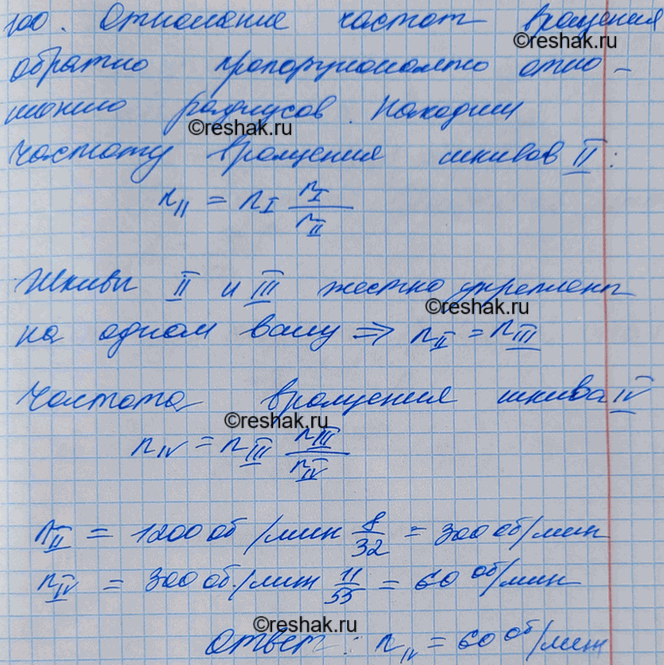 100. Отношение частот вращения
©reshak.ru
обратно пропорционально отно-
шению радиусов. Находим
©reshak.ru
частоту вращения шкивов II:
n_II = n_I r_I / r_II
Шкивы II и III жестко укреплены
©reshak.ru
на одном валу => n_II = n_III
Частота вращения шкива IV
©reshak.ru
n_IV = n_III r_III / r_IV
n_II = 1200 об/мин 8/32 = 300 об/мин
n_IV = 300 об/мин 11/55 = 60 об/мин
©reshak.ru
Ответ: n_IV = 60 об/мин